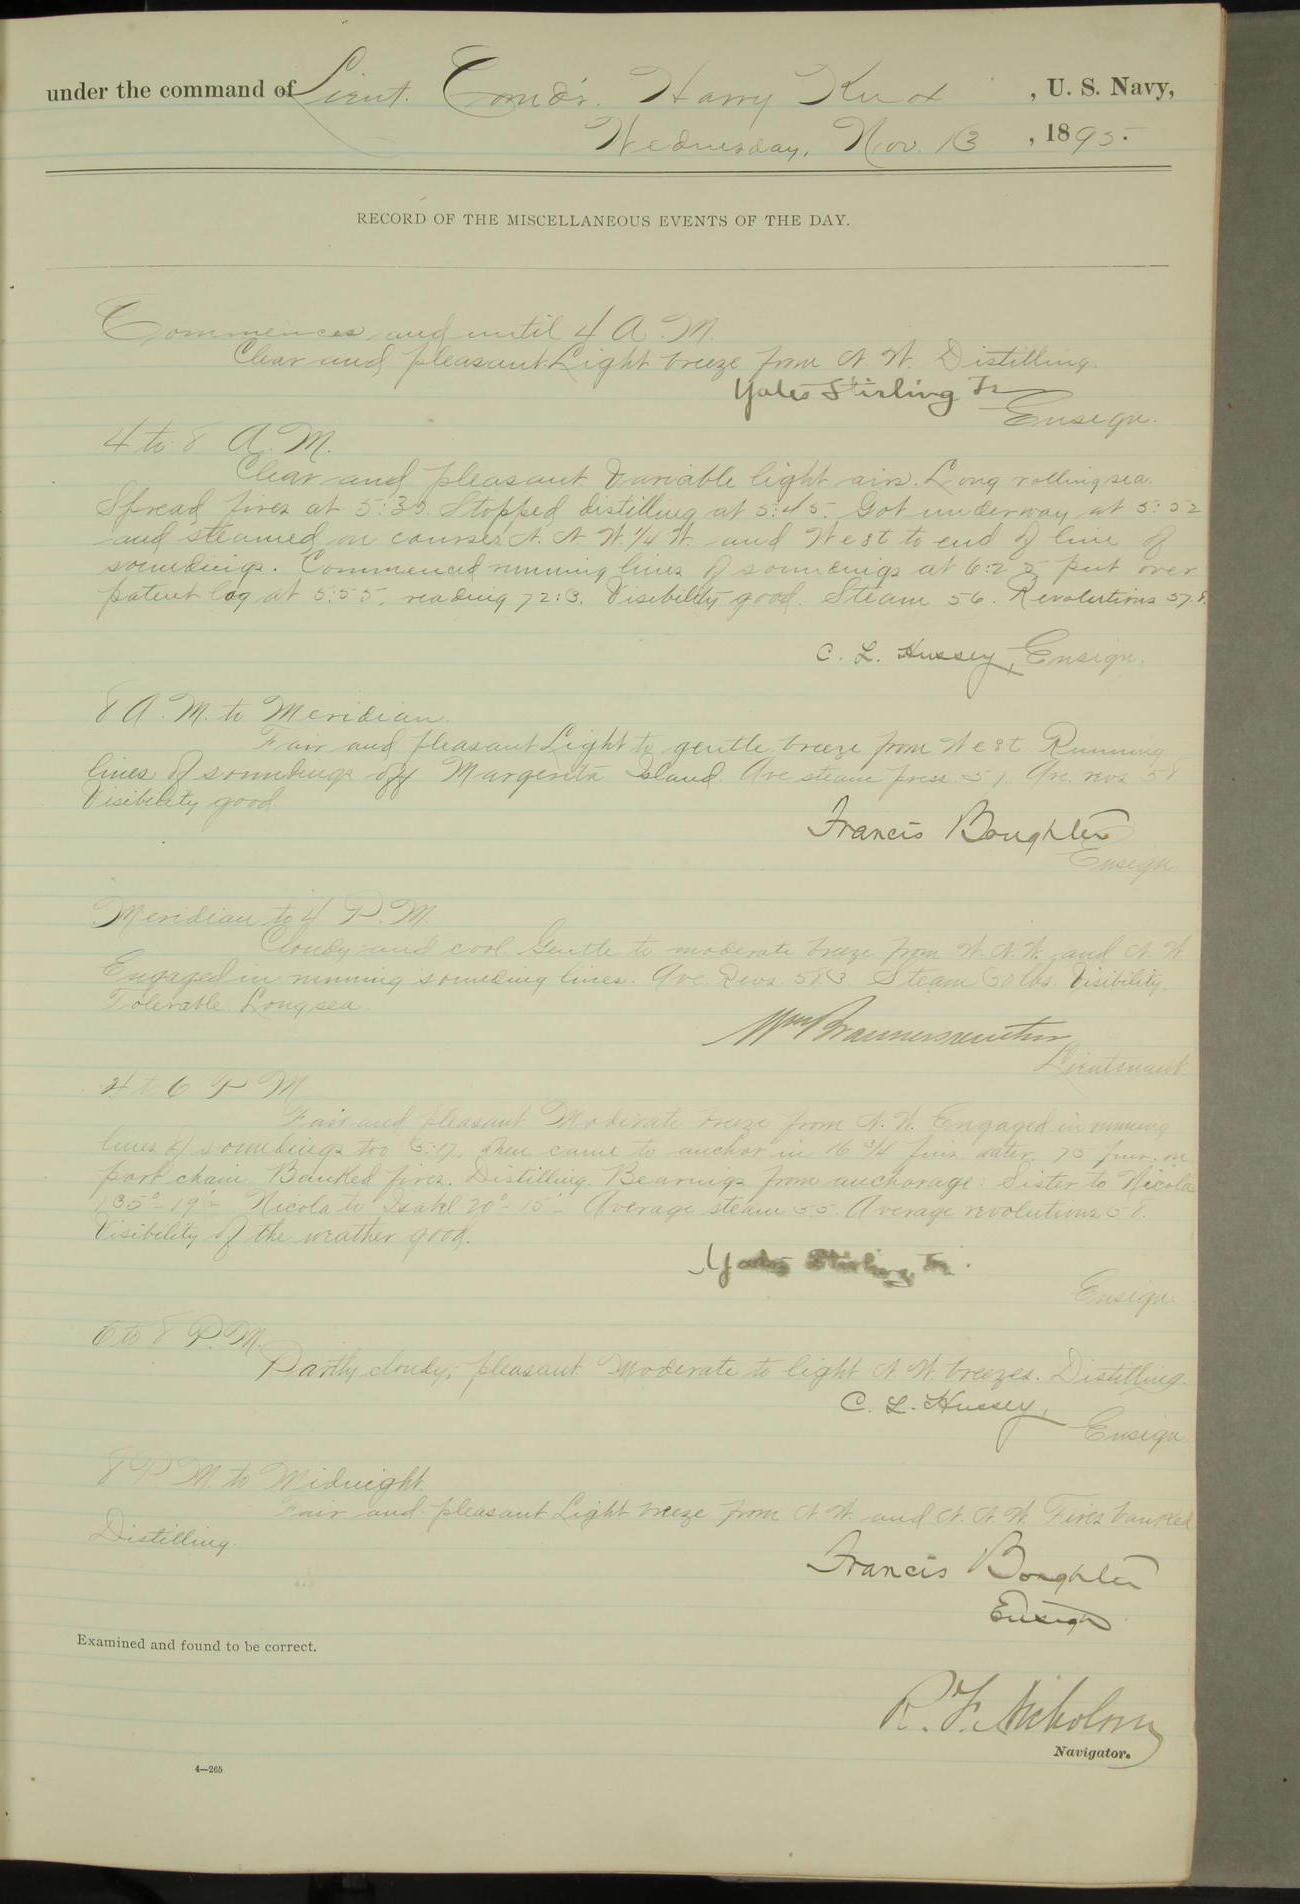 under the command of Lieut. Comd'r. Harry Knox, U. S. Navy,
Wednesday, Nov. 13, 1895.
RECORD OF THE MISCELLANEOUS EVENTS OF THE DAY.
Commences and until 4 A. M.
Clear and pleasant. Light breeze from N. W. Distilling.
Yates Stirling Jr
Ensign.
4 to 8 A. M.
Clear and pleasant Variable light airs. Long rolling sea.
Spread fires at 5:35. Stopped distilling at 5:45. Got underway at 5:52
and steamed on courses N. N. W. 1/4 W. and West to end of line of
soundings. Commenced running lines of soundings at 6:25 put over
patent log at 5:55, reading 72:3. Visibility good. Steam 56. Revolutions 57.8.
C. L. Hussey, Ensign.
8 A. M. to Meridian.
Fair and pleasant Light to gentle breeze from West Running
lines of soundings off Margerita Island. Ave steam press. 51. Ave. revs 58
Visibility good
Francis Boughter
Ensign
Meridian to 4 P. M.
Cloudy and cool Gentle to moderate breeze from W. N. W. and N. W.
Engaged in running sounding lines. Ave. Revs. 58.3 Steam 60 lbs. Visibility
Tolerable. Long sea.
Wm Braunersreuther
Lieutenant
4 to 6 P M
Fair and pleasant Moderate breeze from N. W. Engaged in running
lines of soundings too 5:17, then came to anchor in 16 3/4 fms water, 75 fms. on
port chain Banked fires. Distilling. Bearings from anchorage: Sister to Nicola
135°-19' Nicola to Isabel 20°-15'- Average steam 55. Average revolutions 58.
Visibility of the weather good.
Yates Stirling, Jr.
Ensign
6 to 8 P. M.
Partly cloudy, pleasant Moderate to light N. W. breezes. Distilling.
C. L. Hussey,
Ensign
8 P. M. to Midnight.
Fair and pleasant Light breeze from N. W. and N. N. W. Fires banked
Distilling.
Francis Boughter
Ensign
Examined and found to be correct.
R. F. Nicholson
Navigator.
4—265